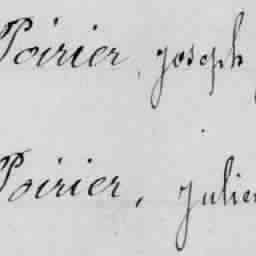 Poirier, joseph
Poirier, julien